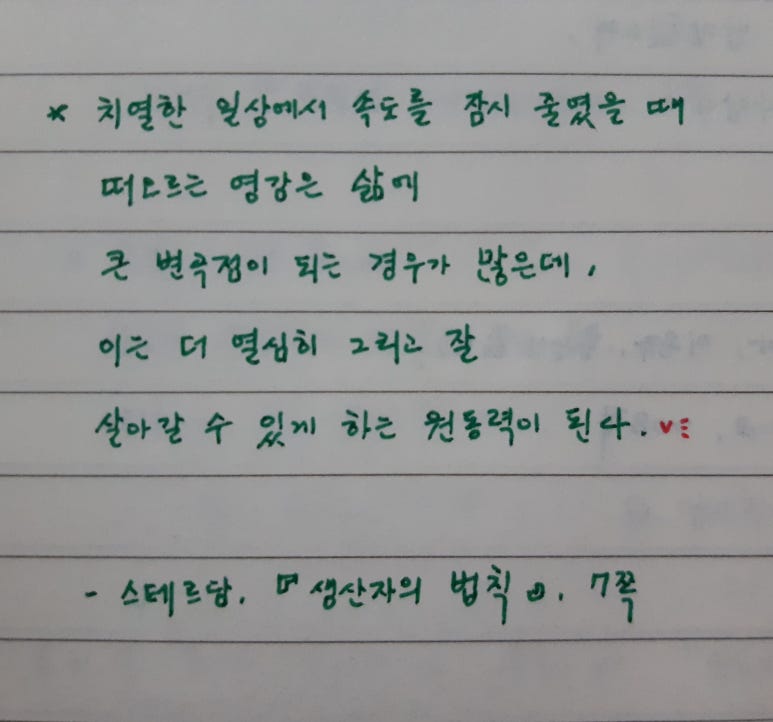 * 치열한 일상에서 속도를 잠시 줄였을 때
떠오르는 영감은 삶에
큰 변곡점이 되는 경우가 많은데,
이는 더 열심히 그리고 잘
살아갈 수 있게 하는 원동력이 된다.
- 스테르담, 『생산자의 법칙』, 7쪽